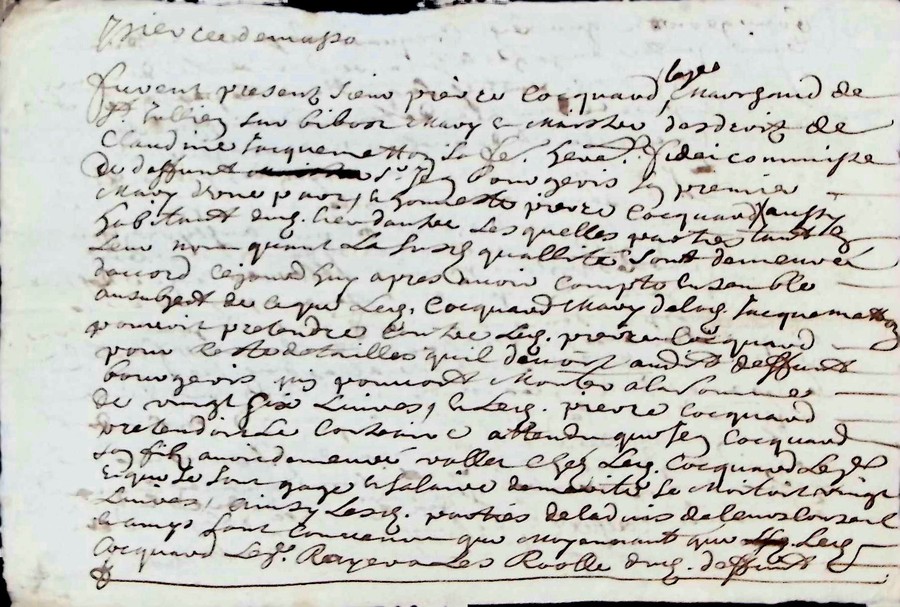 furent present sieur pierre Cocquand laysne Marchand de
St Jullien sur bibost Mary & Maistre des droit de
Claudine Jacquemetton sa fe. here. fideicommise
de deffunt sr Jean Bourgeois son premier
Mary d'une part, & honneste pierre Cocquand aussy
habitant aud. lieu d'autre Lesquelles parties tant en
leur nom quant La susd qualitté sont demeuré
daccord cejourdhuy apres avoir Compte Ensemble
au subject de ce que Led. Cocquand Mary de lad. Jacquemetton
pouvoit pretendre Contre Led. pierre Cocquand
pour reste de tailles quil devoit audit deffunt
bourgeois pouvant Monter a la somme
de vingt six Livres, & Led. pierre Cocquand
pretendoit Le Contraire attendu que Jean Cocquand
son fils avoit demeuré vallet Chez Led. Cocquand
Et que de son gage & salaire de merite se Montoit vingt
Livres, Ainsy Lesd. parties de ladvis de leurs Conseil
& amys sont Convenu que Moyennant que Led.
Cocquand Rayera Les Roolle dud. deffunt